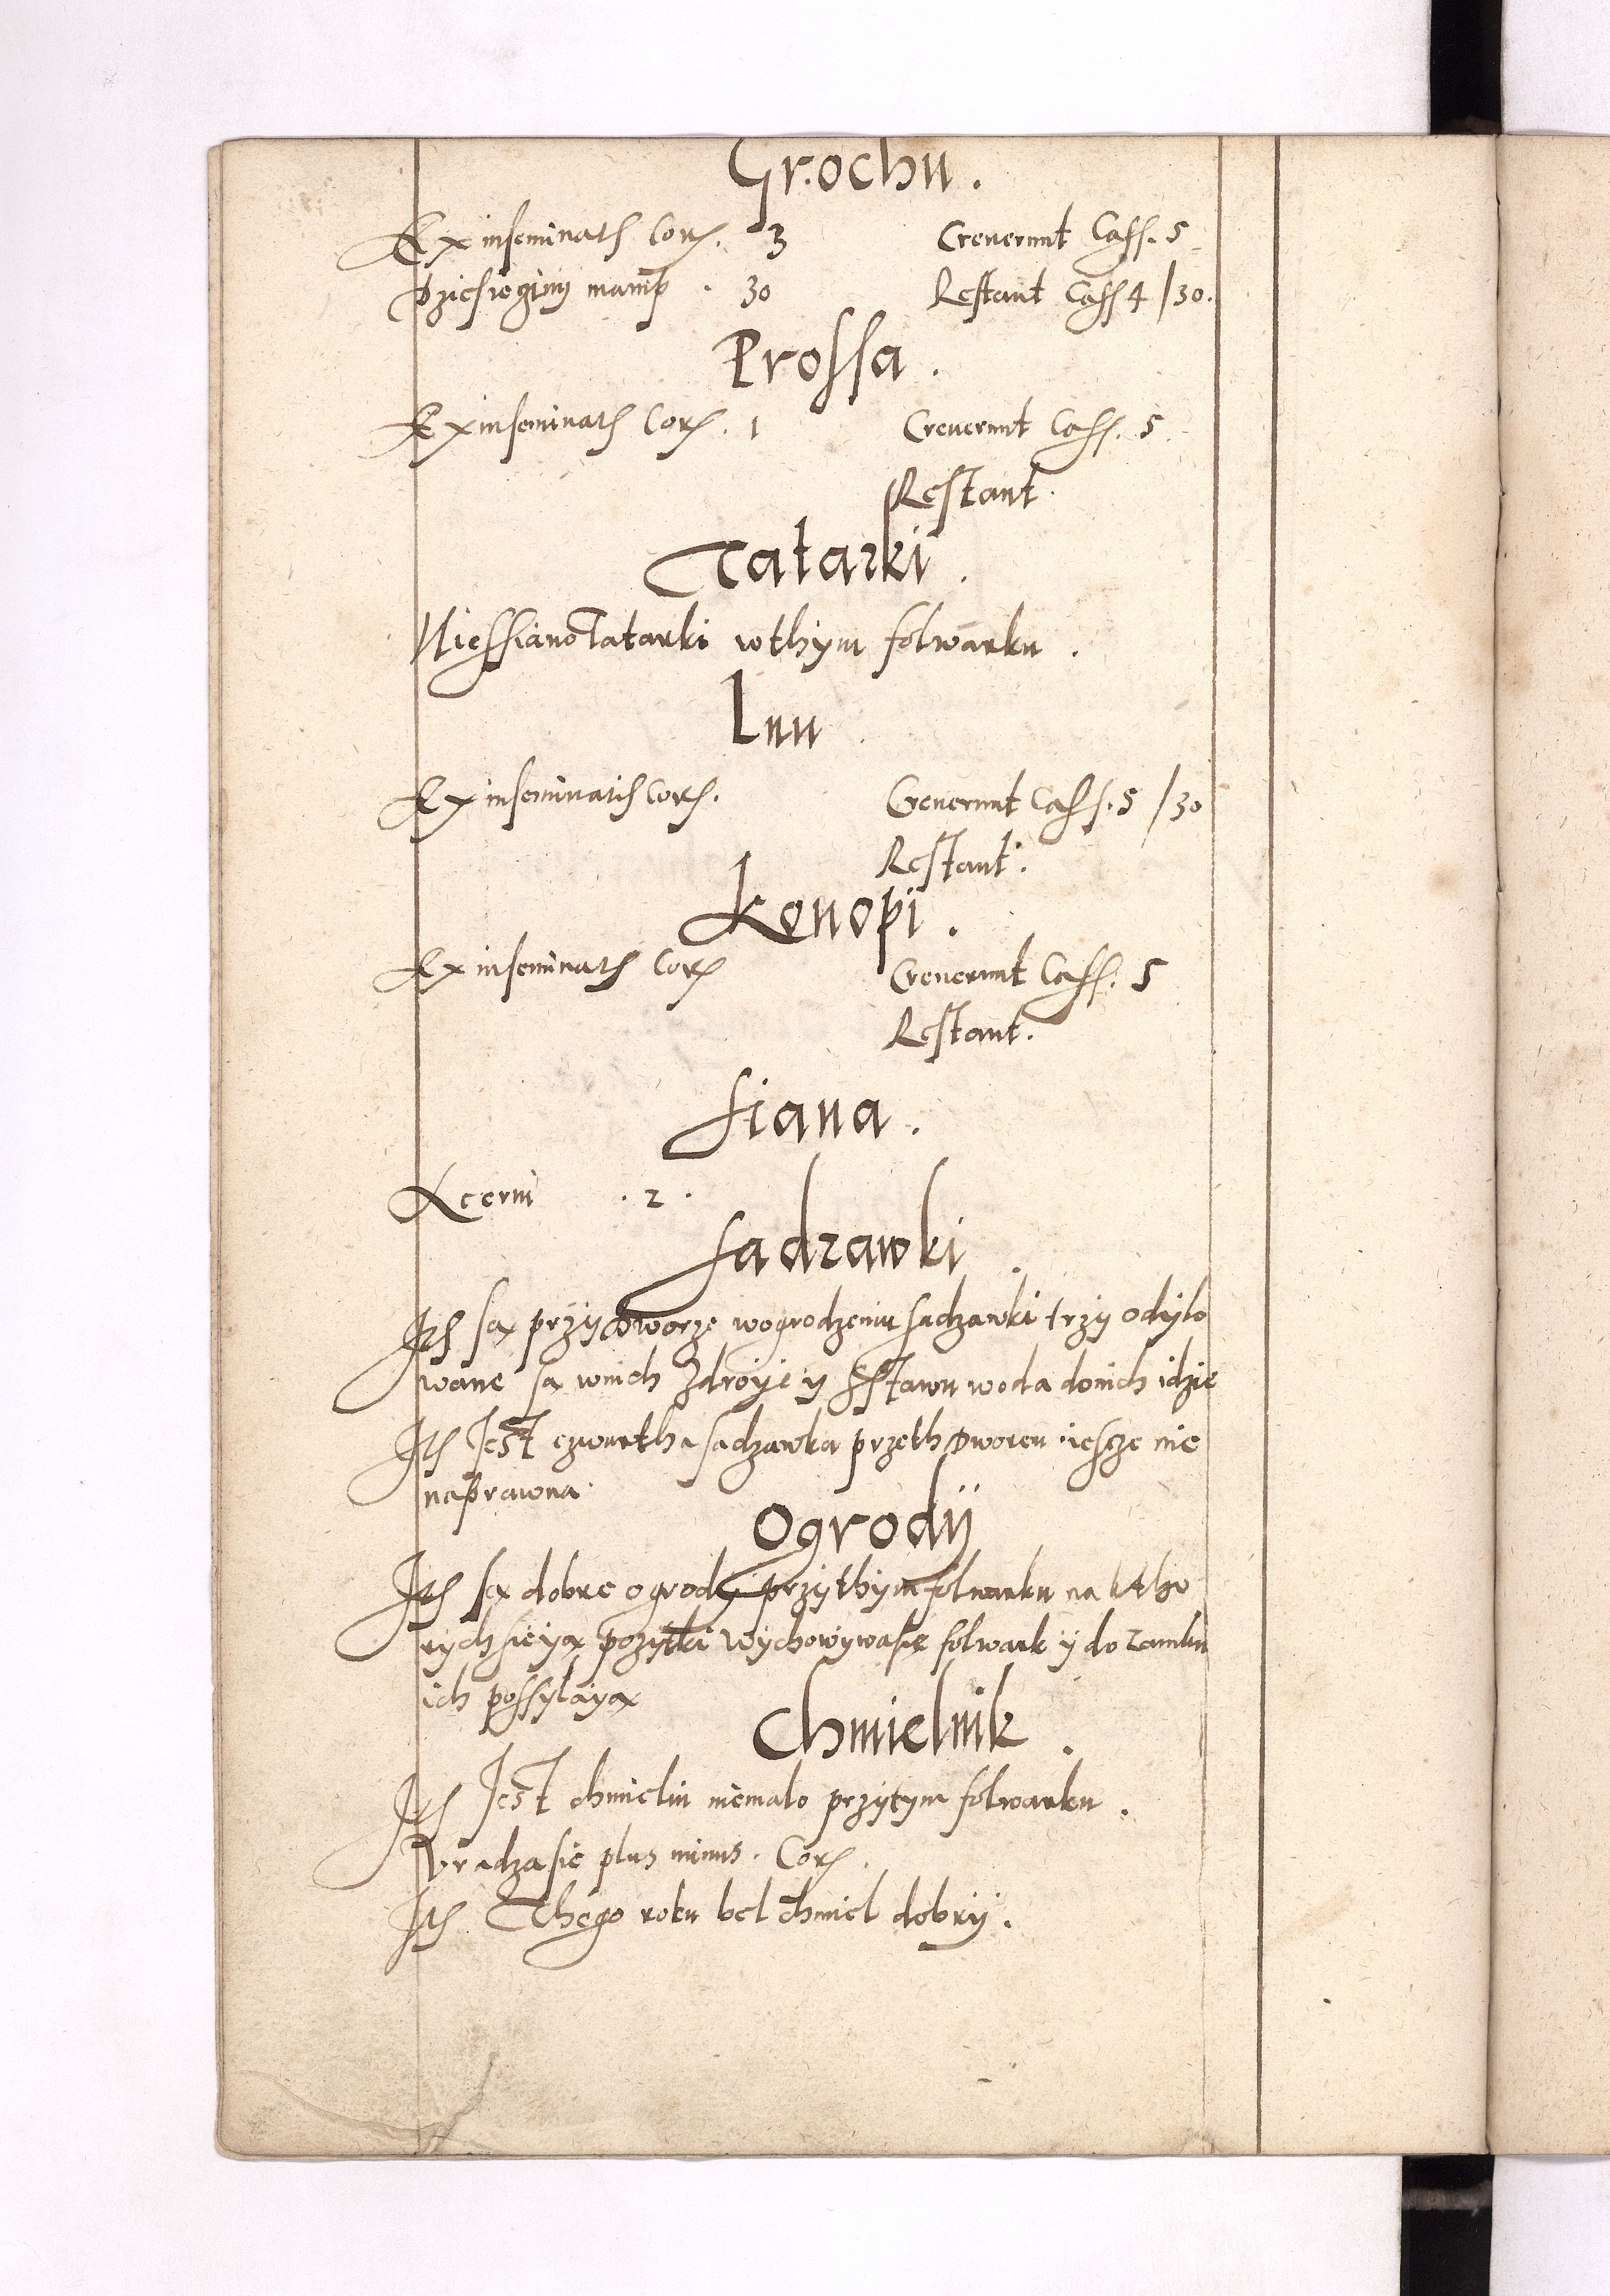 Grochu.
Ex inseminatis Cor. 3 Creverunt Cass. 5
Dziesięciny manip. 30 Restant Cass 4 / 30.
Prossa.
Ex inseminatis Cor. 1 Creverunt Cass. 5.
Restant.
Tatarki.
Niessiano Tatarki w thym folwarku.
Lnu.
Ex inseminatis Cor. Creverunt Cass. 5 / 30
Restant.
Konopi.
Ex inseminatis Cor Creverunt Cass. 5
Restant.
Siana.
Acervi . 2 .
Sadzawki.
Itē są przy dworze wogrodzeniu sadzawki trzy odylo
wane są wnich Zdroye y sstawu woda donich idzie
Itē Jest czwartha sadzawka przeth Dworem iescze nie
naprawna.
Ogrody
Itē są dobre ogrody przythym folwarku na ktho
rych sieyą pozytki wychowywa się folwark y do zamku
ich possylayą
Chmielnik.
Itē Jest chmielu niemalo przytym folwarku.
Vradza sie plus minus. Cor.
Itē Thego roku bel chmiel dobry.